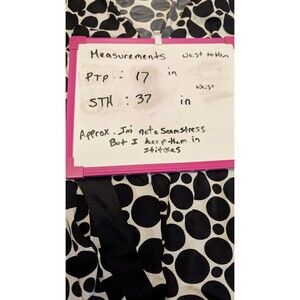 Measurements Waist to Hem
PTP : 17 in
Waist
STH : 37 in
Approx. I'm not a seamstress
But I keep them in
stitches